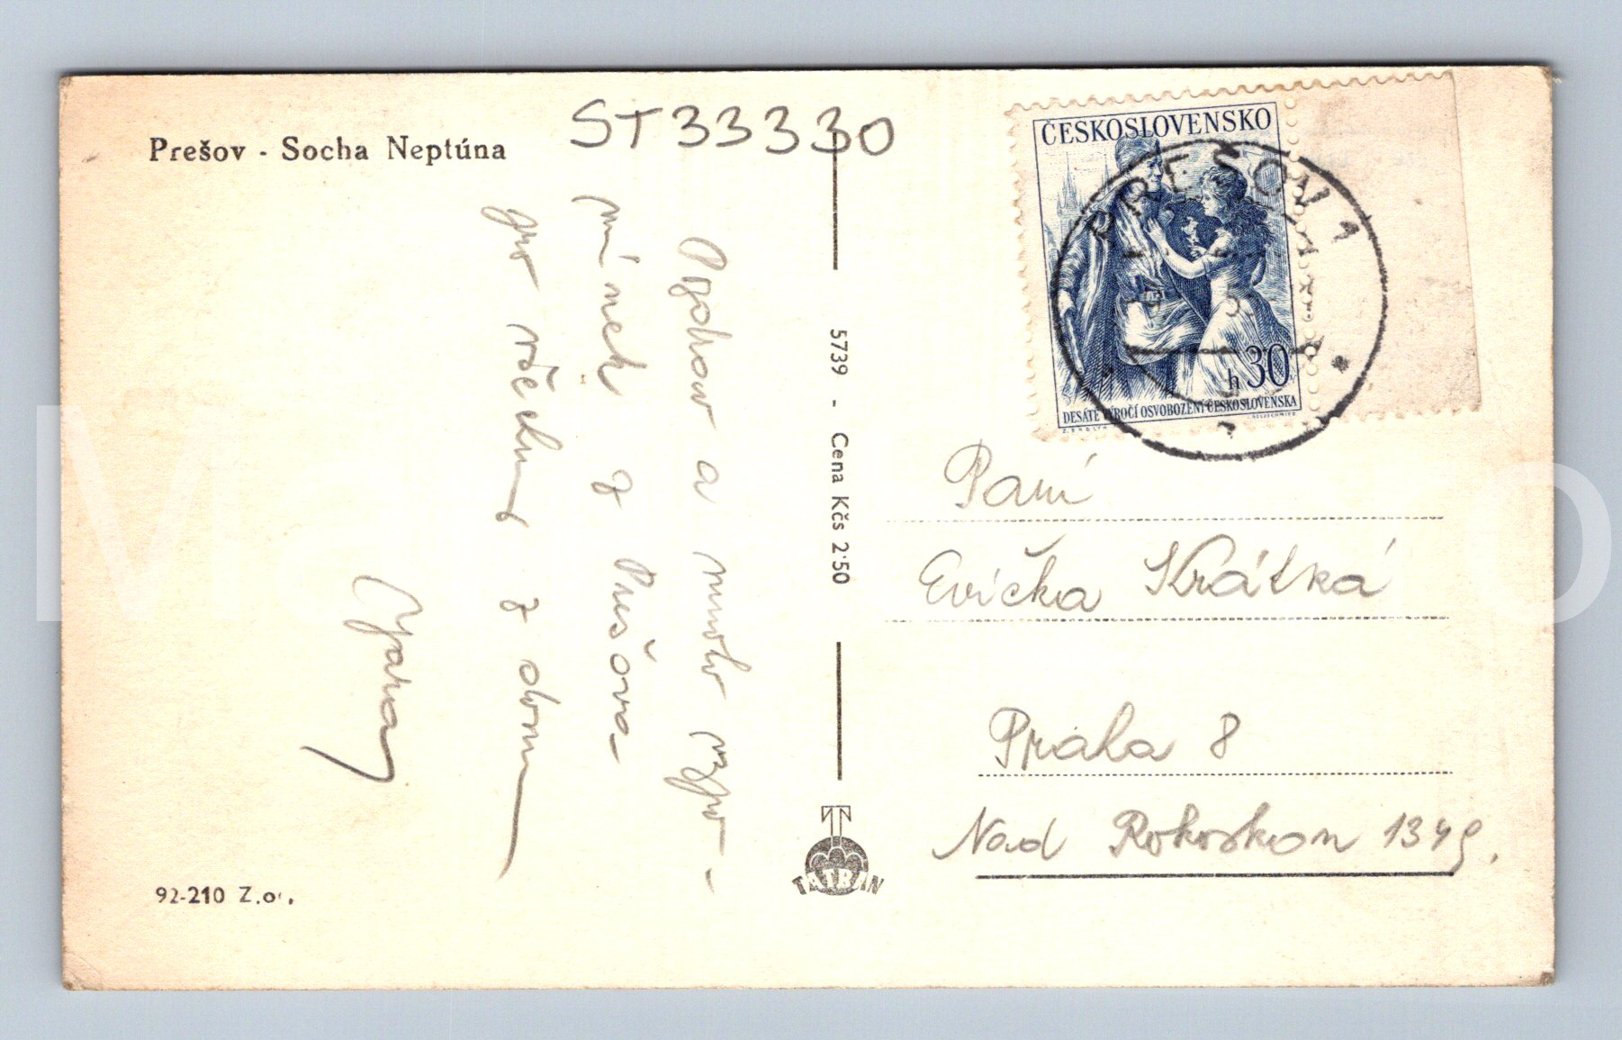 Prešov - Socha Neptúna
ST33330
Pozdrav a mnoho vzpo-
mínek z Prešova
pro všechny z domu
Jarka
92-210 Z.
5739 - Cena Kčs 2·50
TATRAN
ČESKOSLOVENSKO
PREŠOV 1
h 30
DESÁTÉ VÝROČÍ OSVOBOZENÍ ČESKOSLOVENSKA
Paní
Evička Krátká
Praha 8
Nad Rokoskou 1349.